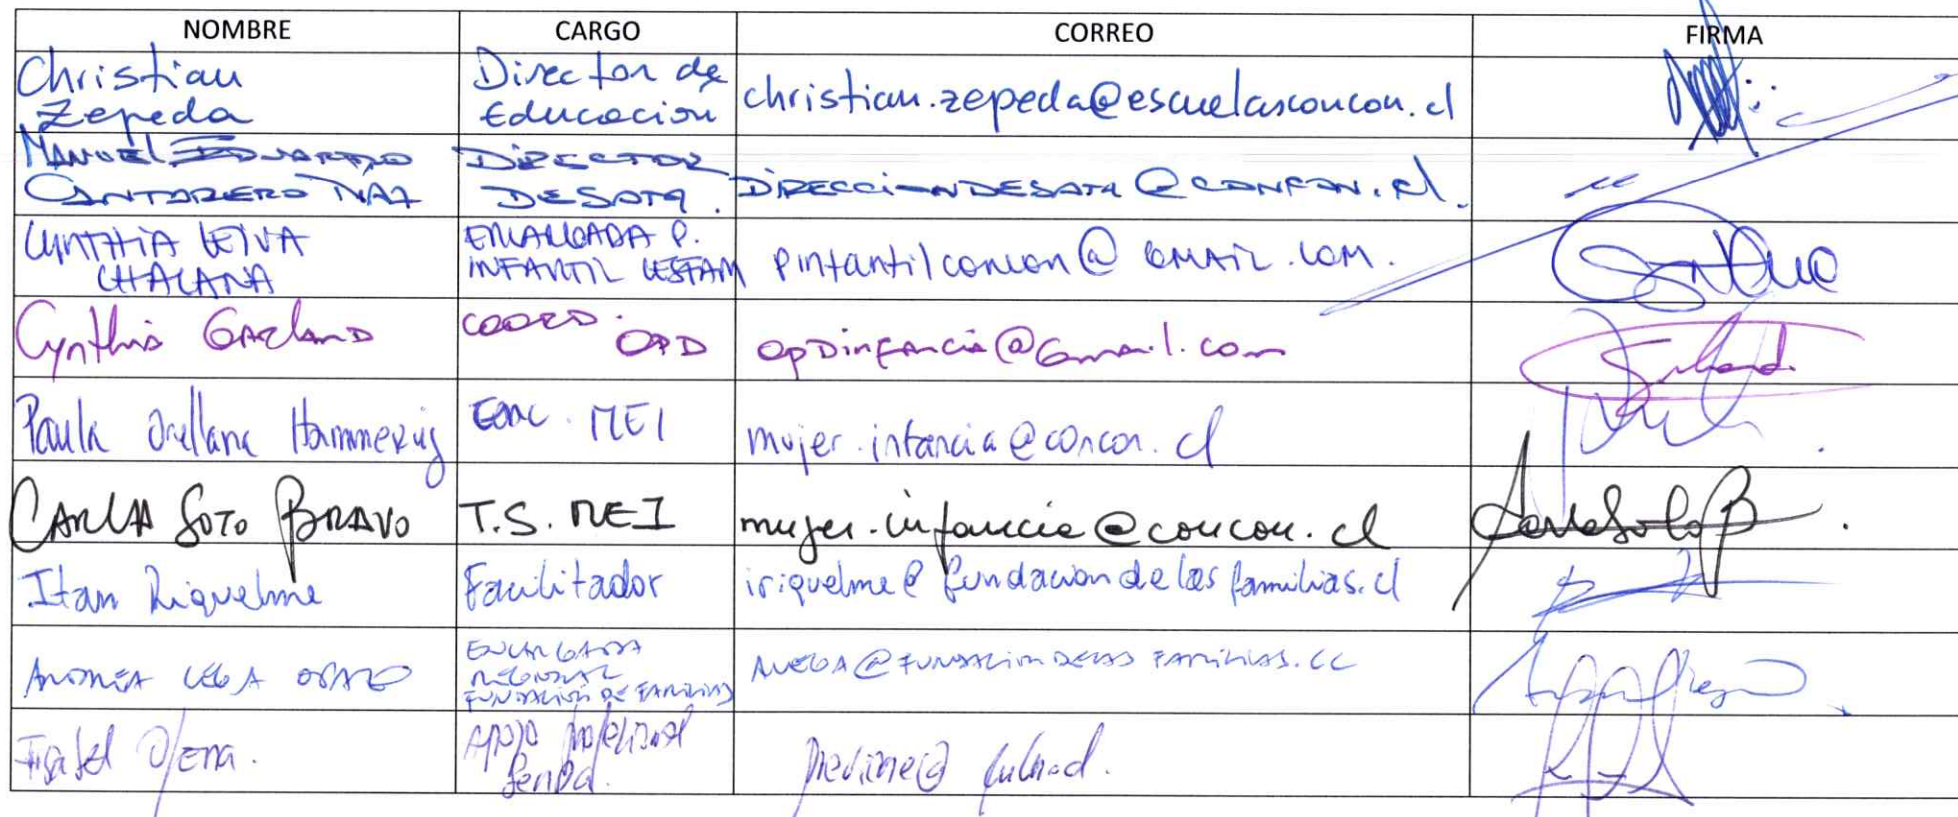 NOMBRE CARGO CORREO FIRMA
Christian Director de
Zepeda Educacion christian.zepeda@escuelasconcon.cl
MANUEL EDUARDO DIRECTOR
CANTARERO DESATA. DIRECCIONDESATA@CONCON.cl.
CYNTHIA LEIVA ENCARGADA P.
CHACANA INFANTIL CESFAM pinfantilconcon@GMAIL.COM.
Cynthia Garland COORD. OPD opdinfancia@Gmail.com
Paula Orellana Enc. MEI mujer.infancia@concon.cl
CARLA SOTO BRAVO T.S. MEI mujer.infancia@concon.cl
Itan Riquelme Facilitador iriquelme@fundaciondelasfamilias.cl
ANDREA VEGA OPAZO ENCARGADA
REGIONAL AVEGA@FUNDACIONDELAS FAMILIAS.CL
FUNDACION DE FAMILIAS
Isabel Apoyo profesional
Senda.